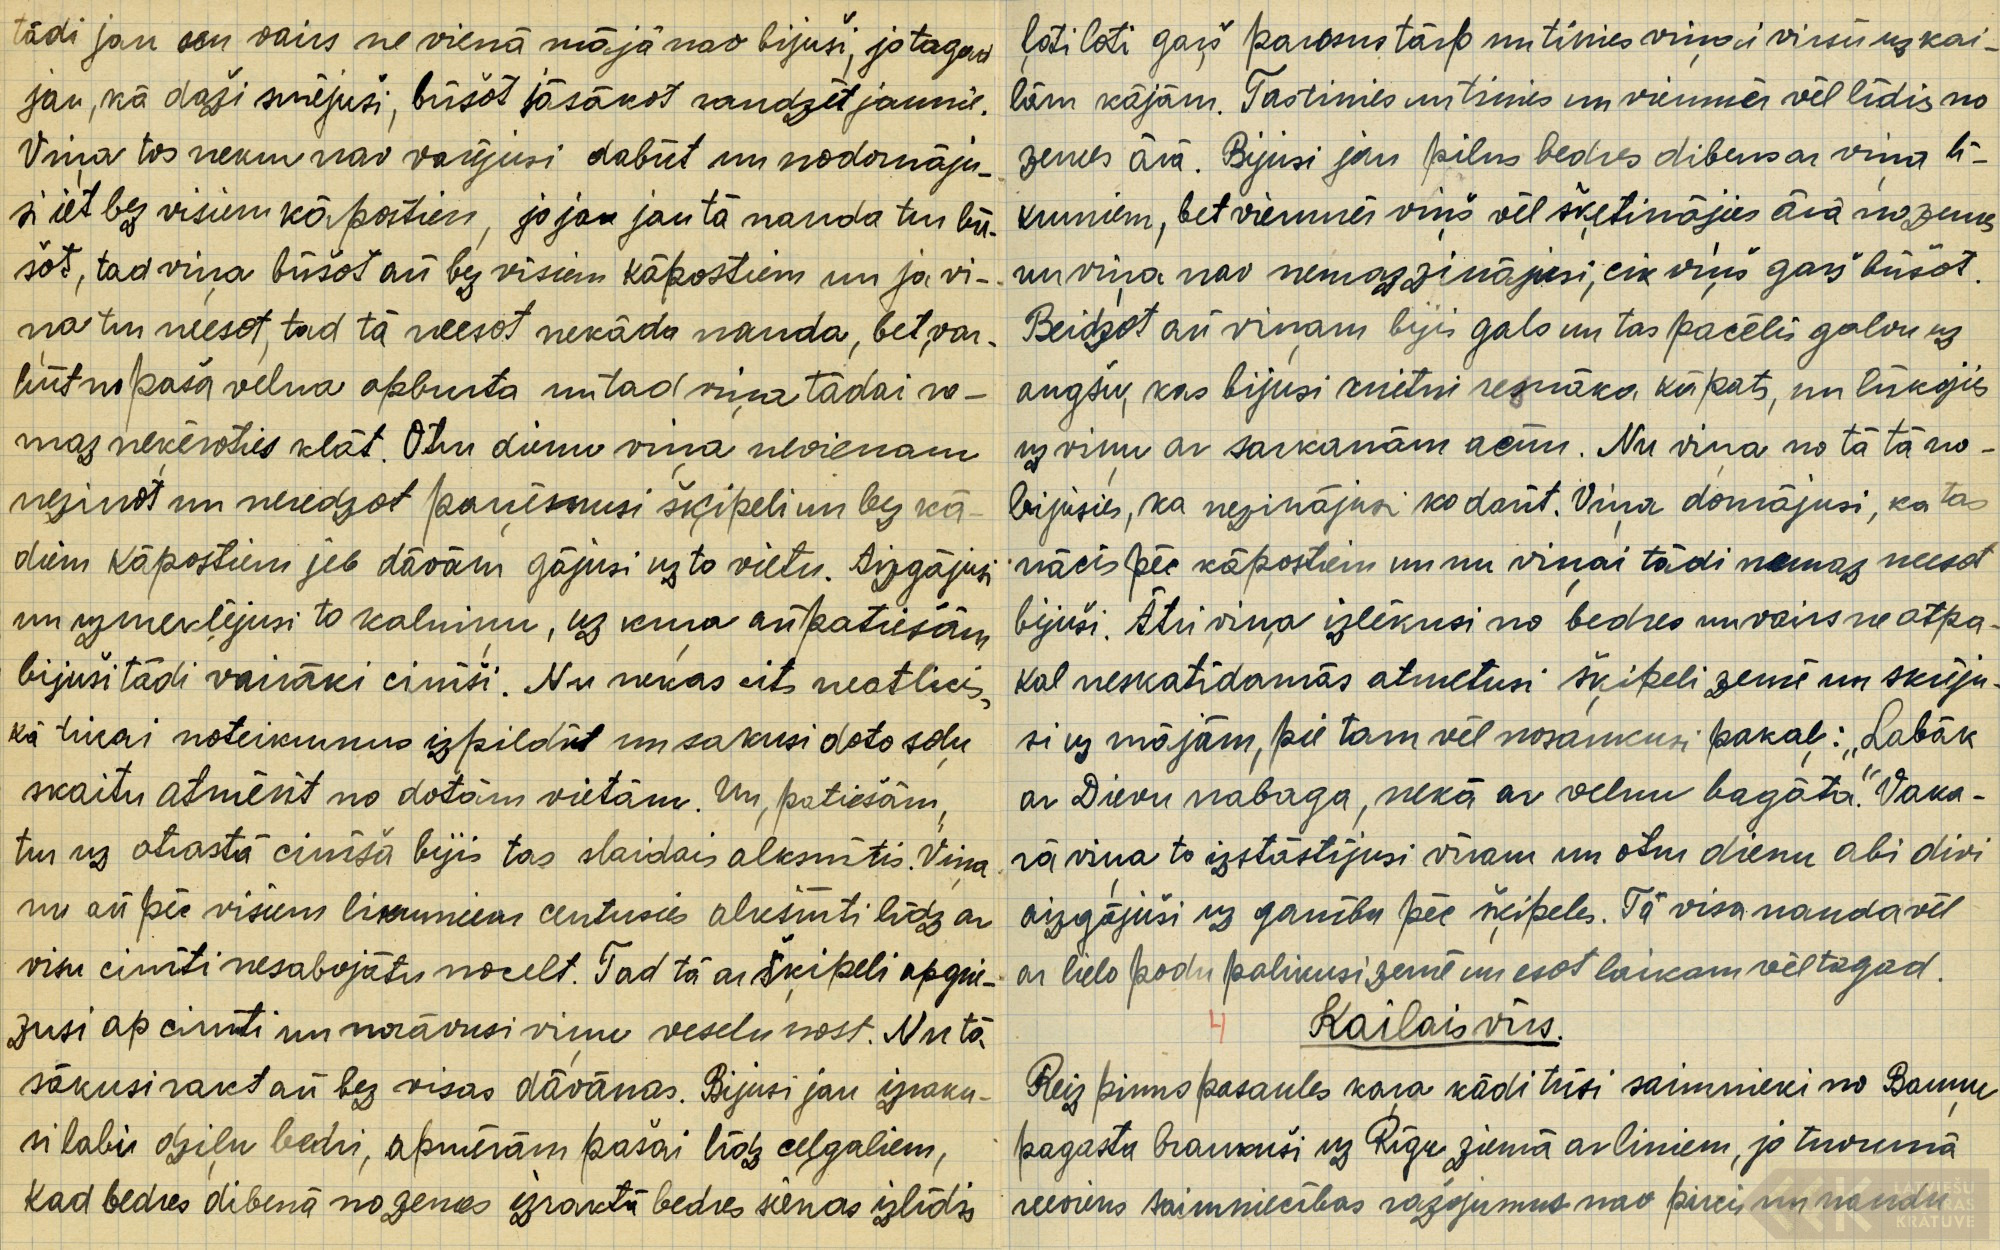 tādi jau sen vairs ne vienā mājā nav bijuši, jo tagad
jau, kā daži smējuši, būšot jāsākot raudzēt jaunie.
Viņa tos nekur nav varējusi dabūt un nodomāju-
si iet bez visiem kāpostiem, jo jau jau tā nauda tur bū-
šot, tad viņa būšot arī bez visiem kāpostiem un ja vi-
ņa tur neesot, tad tā neesot nekāda nauda, bet, var-
būt no paša velna apburta un tad viņa tādai ne-
maz neķeroties klāt. Otru dienu viņa nevienam
nezinot un neredzot paņēmusi šķipeli un bez kā-
diem kāpostiem jeb dāvām gājusi uz to vietu. Aizgājusi
un uzmeklējusi to kalniņu, uz kuŗa arī patiešām
bijuši tādi vairāki ciniši. Nu nekas cits neatlicis,
kā tikai noteikumus izpildīt un sākusi doto soļu
skaitu atmērīt no dotām vietām. Un, patiešām,
tur uz otrastā ciniša bijis tas slaidais alksnītis. Viņa
nu arī pēc visiem likumiem centusies alksnīti līdz ar
visu cinīti nesabojātu nocelt. Tad tā ar šķipeli apgrie-
zusi ap cinīti un norāvusi viņu veselu nost. Nu tā
sākusi rakt arī bez visas dāvānas. Bijusi jau izraku-
si labi dziļu bedri, apmēram pašai līdz ceļgaliem,
kad bedres dibenā no zemes izraktā bedres sienas izlīdis
ļoti ļoti gaŗš parosus tārps un tinies viņai virsū uz kai-
lām kājām. Tas tinies un tinies un vienmēr vēl līdis no
zemes ārā. Bijusi jau pilns bedres dibens ar viņa lī-
kumiem, bet vienmēr viņš vēl šķetinājies ārā no zemes
un viņa nav nemaz zinājusi, cik viņš gaŗš būšot.
Beidzot arī viņam bijis gals un tas pacēlis galvu uz
augšu, kas bijusi krietni resnāka kā pats, un lūkojies
uz viņu ar sarkanām acīm. Nu viņa no tā tā no-
bijusies, ka nezinājusi ko darīt. Viņa domājusi, ka tas
nācis pēc kāpostiem un nu viņai tādi nemaz neesot
bijuši. Ātri viņa izlēkusi no bedres un vairs ne atpa-
kal neskatīdamās atmetusi šķipeli zemē un skrēju-
si uz mājām, pie tam vēl nosaukusi pakaļ: „Labāk
ar Dievu nabaga, nekā ar velnu bagāta." Vaka-
rā viņa to izstāstījusi vīram un otru dienu abi divi
aizgājuši uz ganību pēc šķipeles. Tā visa nauda vēl
ar lielo podu palikusi zemē un esot laikam vēl tagad.
4 Kailais vīrs.
Reiz pirms pasaules kaŗa kādi trīsi saimnieki no Bauņu
pagasta braukuši uz Rīgu ziemā ar liniem, jo tuvumā
neviens saimniecības ražojumus nav pircis un naudu
LATVIEŠU
KRĀTUVE